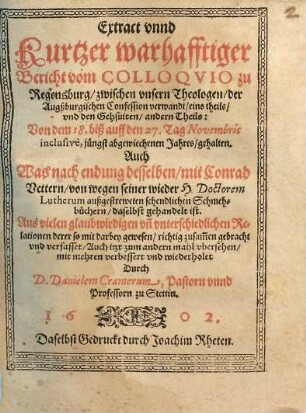 2
Extract vnnd
Kurtzer warhafftiger
Bericht vom COLLOQVIO zu
Regenspurg/zwischen vnsern Theologen/der
Augspurgischen Confession verwandt/eins theils/
vnd den Gesuiten/andern Theils:
Von dem 18. biß auff den 27. Tag Novembris
inclusivè, jüngst abgewichenen Jahres/gehalten.
Auch
Was nach endung desselben/mit Conrad
Vettern/von wegen seiner wieder H. Doctorem
Lutherum außgestreweten schendlichen Schmeh-
büchern/daselbst gehandelt ist.
Aus vielen glaubwirdigen vñ vnterschiedlichen Re-
lationen derer so mit darbey gewesen/richtig zusam̃en gebracht
vnd verfasset/Auch itzt zum andern mahl vbersehen/
mit mehren verbessert vnd wiederholet
Durch
D. Danielem Cramerum, Pastorn vnnd
Professorn zu Stettin.
1602.
Daselbst Gedruckt durch Joachim Rheten.